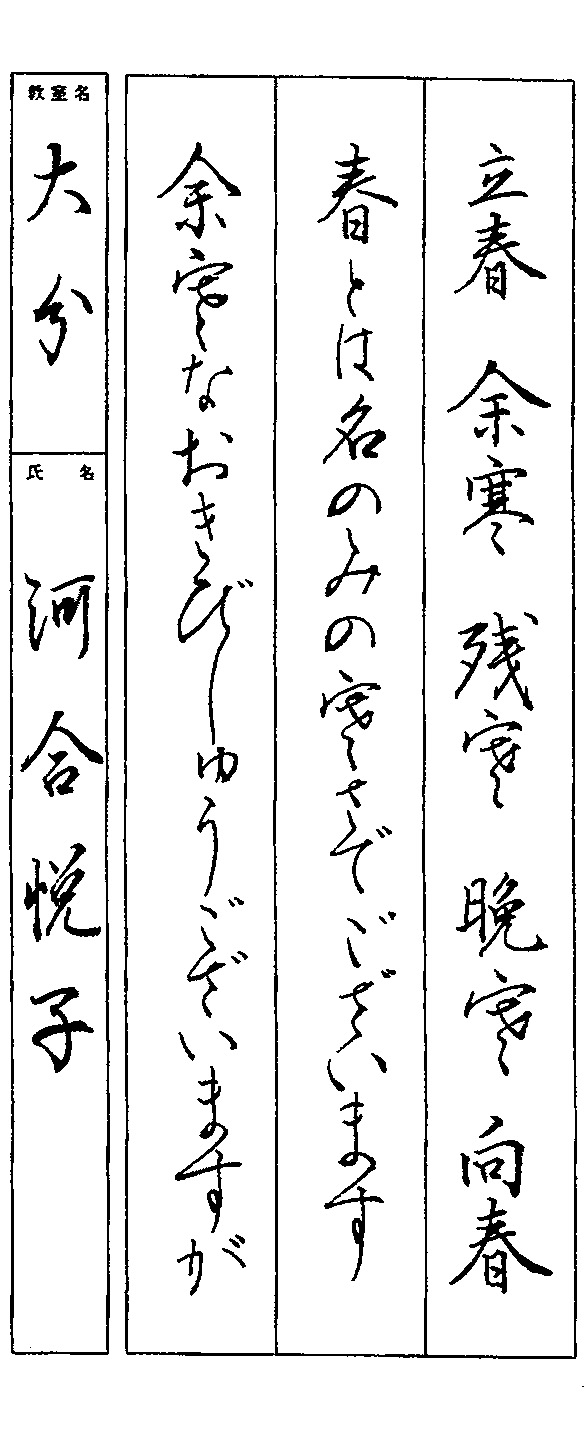 立春 余寒 残寒 晩寒 向春
春とは名のみの寒さでございます
余寒なおきびしゅうございますが
教室名
大分
氏名
河合悦子